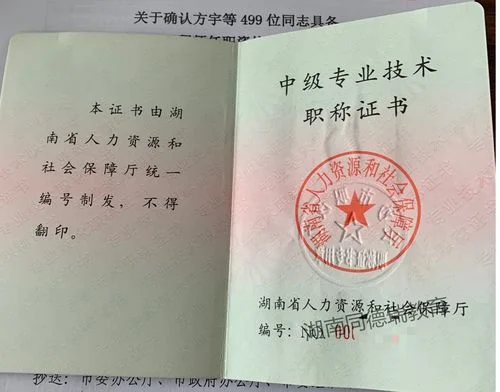 关于确认方字等499位同志具备
本证书由湖
南省人力资源和
社会保障厅统一
编号制发，不得
翻印。
中级专业技术
职称证书
湖南省人力资源和社会保障厅
湖南省人力资源和社会保障厅
编号：
湖南同德瑞教育
抄送：市委办公厅、市政府办公厅、